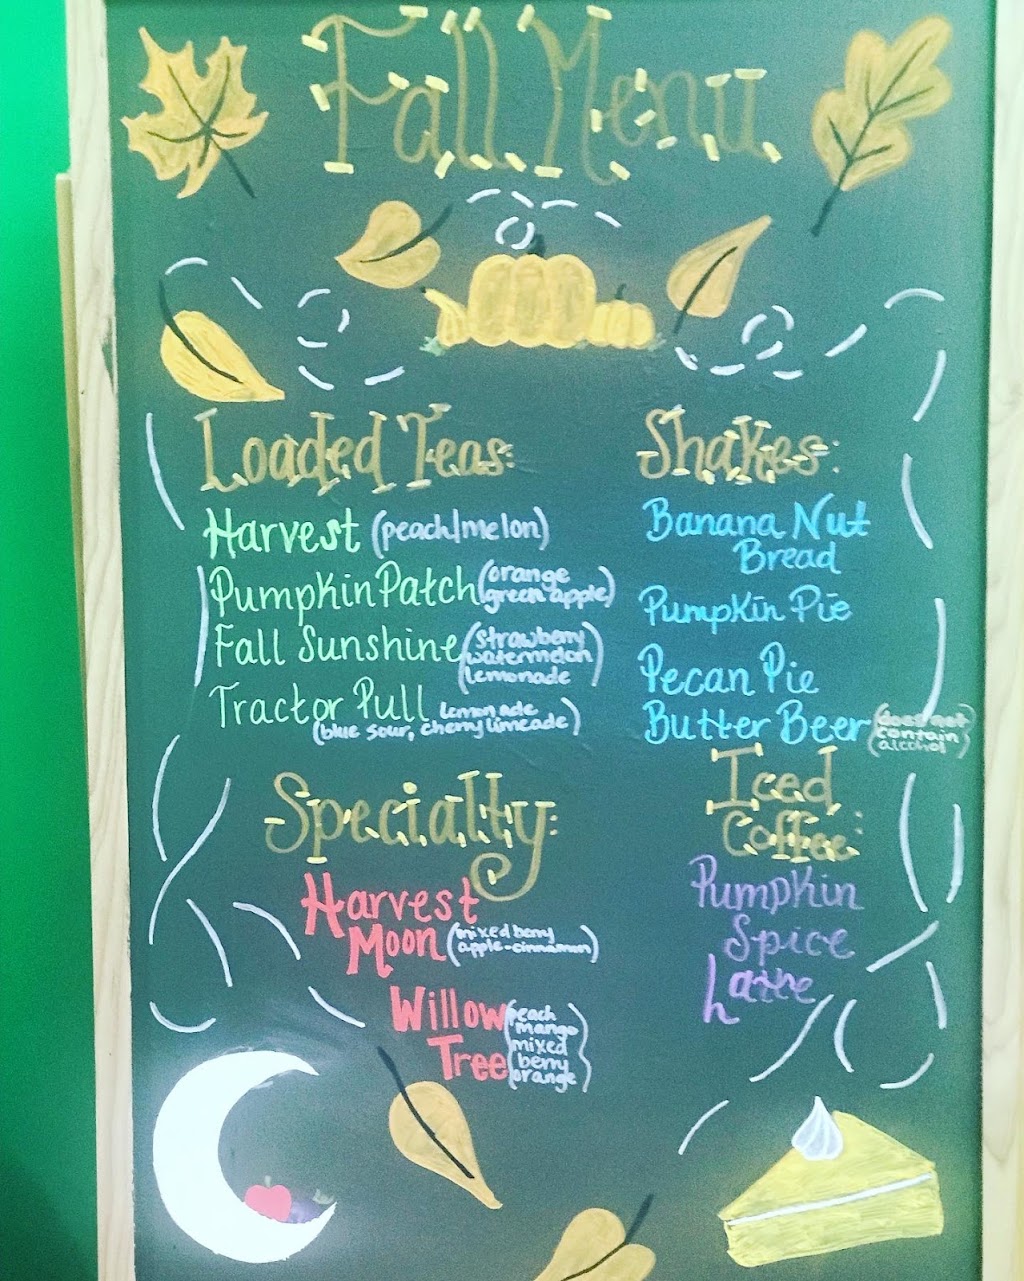 Fall Menu
Loaded Teas:
Harvest (peach/melon)
Pumpkin Patch (orange
green apple)
Fall Sunshine (strawberry
watermelon
lemonade
Tractor Pull lemonade
(blue sour, cherry limeade)
Shakes:
Banana Nut
Bread
Pumpkin Pie
Pecan Pie
Butter Beer (does not
contain
alcohol)
Specialty:
Harvest
Moon (mixed berry
apple-cinnamon)
Willow
Tree (peach
mango
mixed
berry
orange)
Iced
Coffee:
Pumpkin
Spice
Latte